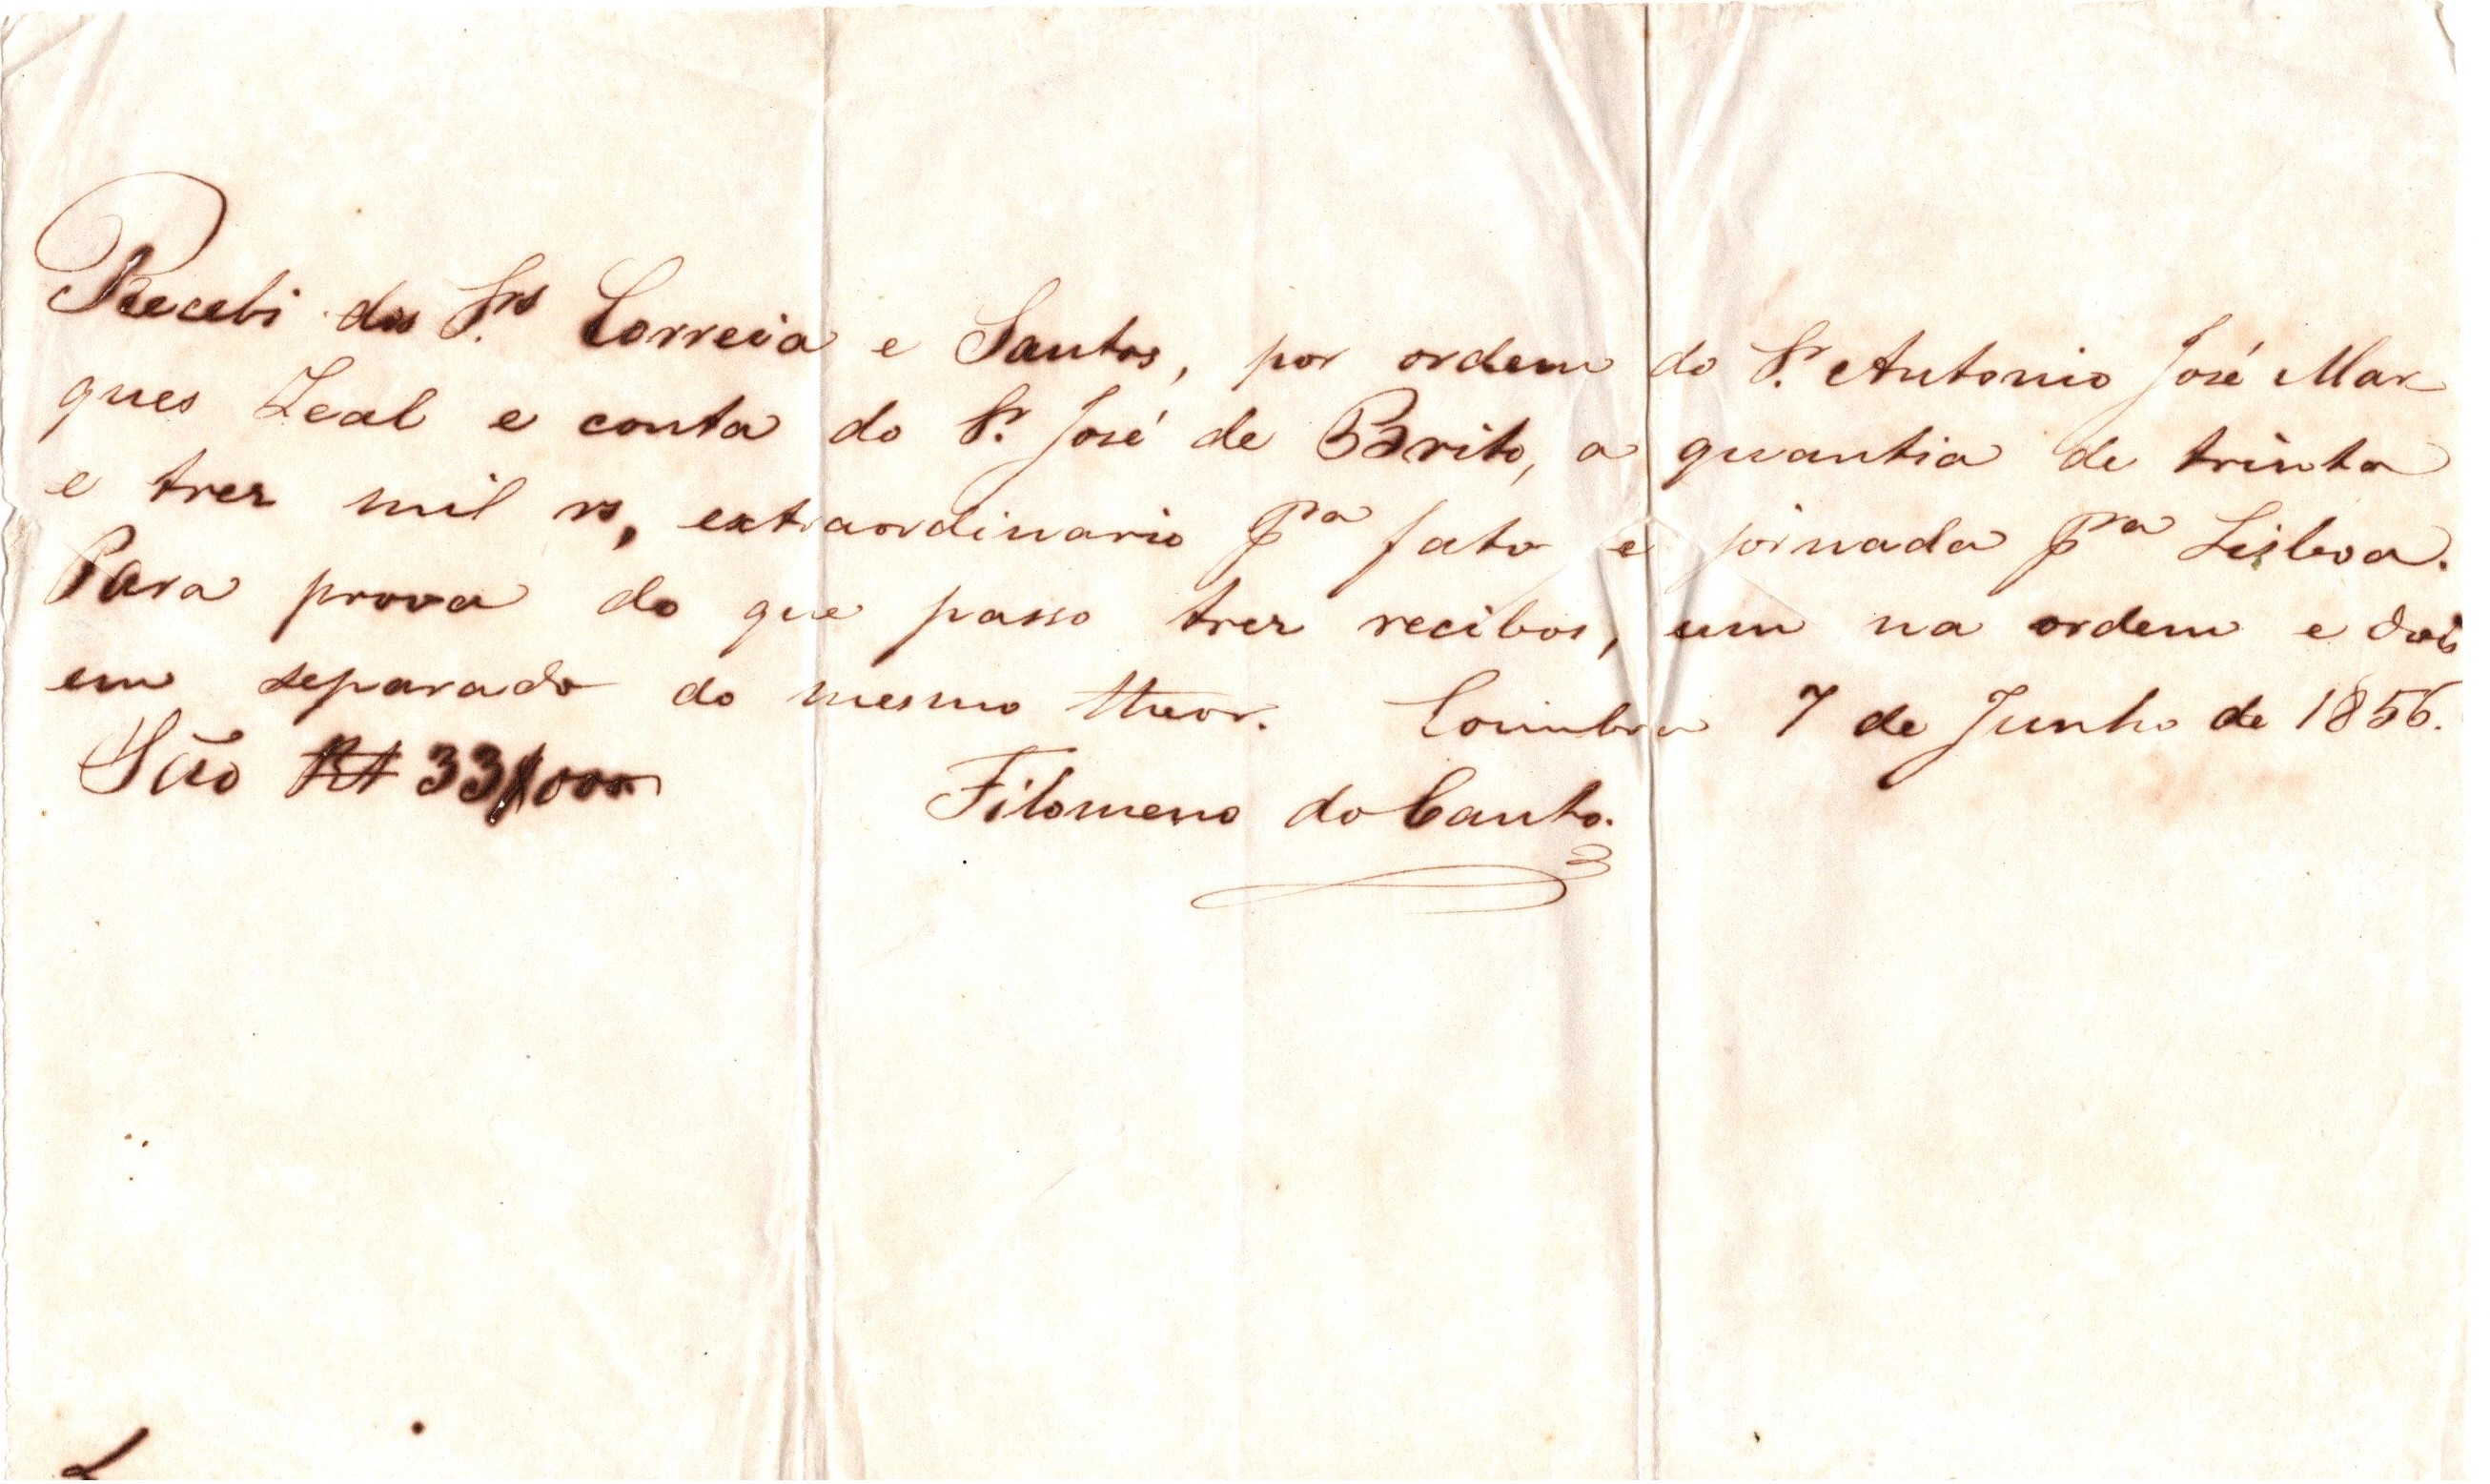 Recebi dos Srs Correia e Santos, por ordem do Sr Antonio José Mar
ques Leal e conta do Sr. José de Brito, a quantia de trinta
e trez mil rs, extraordinario pra fato e jornada pra Lisboa.
Para prova do que passo trez recibos, um na ordem e dois
em separado do mesmo theor. Coimbra 7 de Junho de 1856.
São Rs 33$000
Filomeno do Canto.